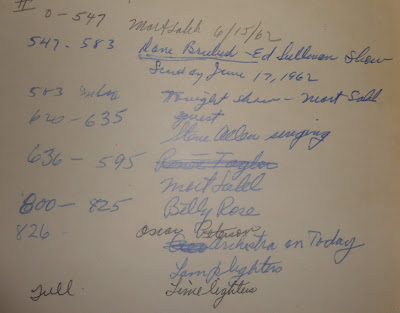 II
0 - 547 Mort Sahl 6/15/62
547 - 583 Dave Brubeck - Ed Sullivan Show
Sunday June 17, 1962
583 Tonight show - Mort Sahl
guest
620 - 635 Steve Allen singing
636 - 595 Renee Taylor
Mort Sahl
800 - 825 Billy Rose
826 Oscar Peterson
Orchestra on Today
Lamplighters
Full Limelighters